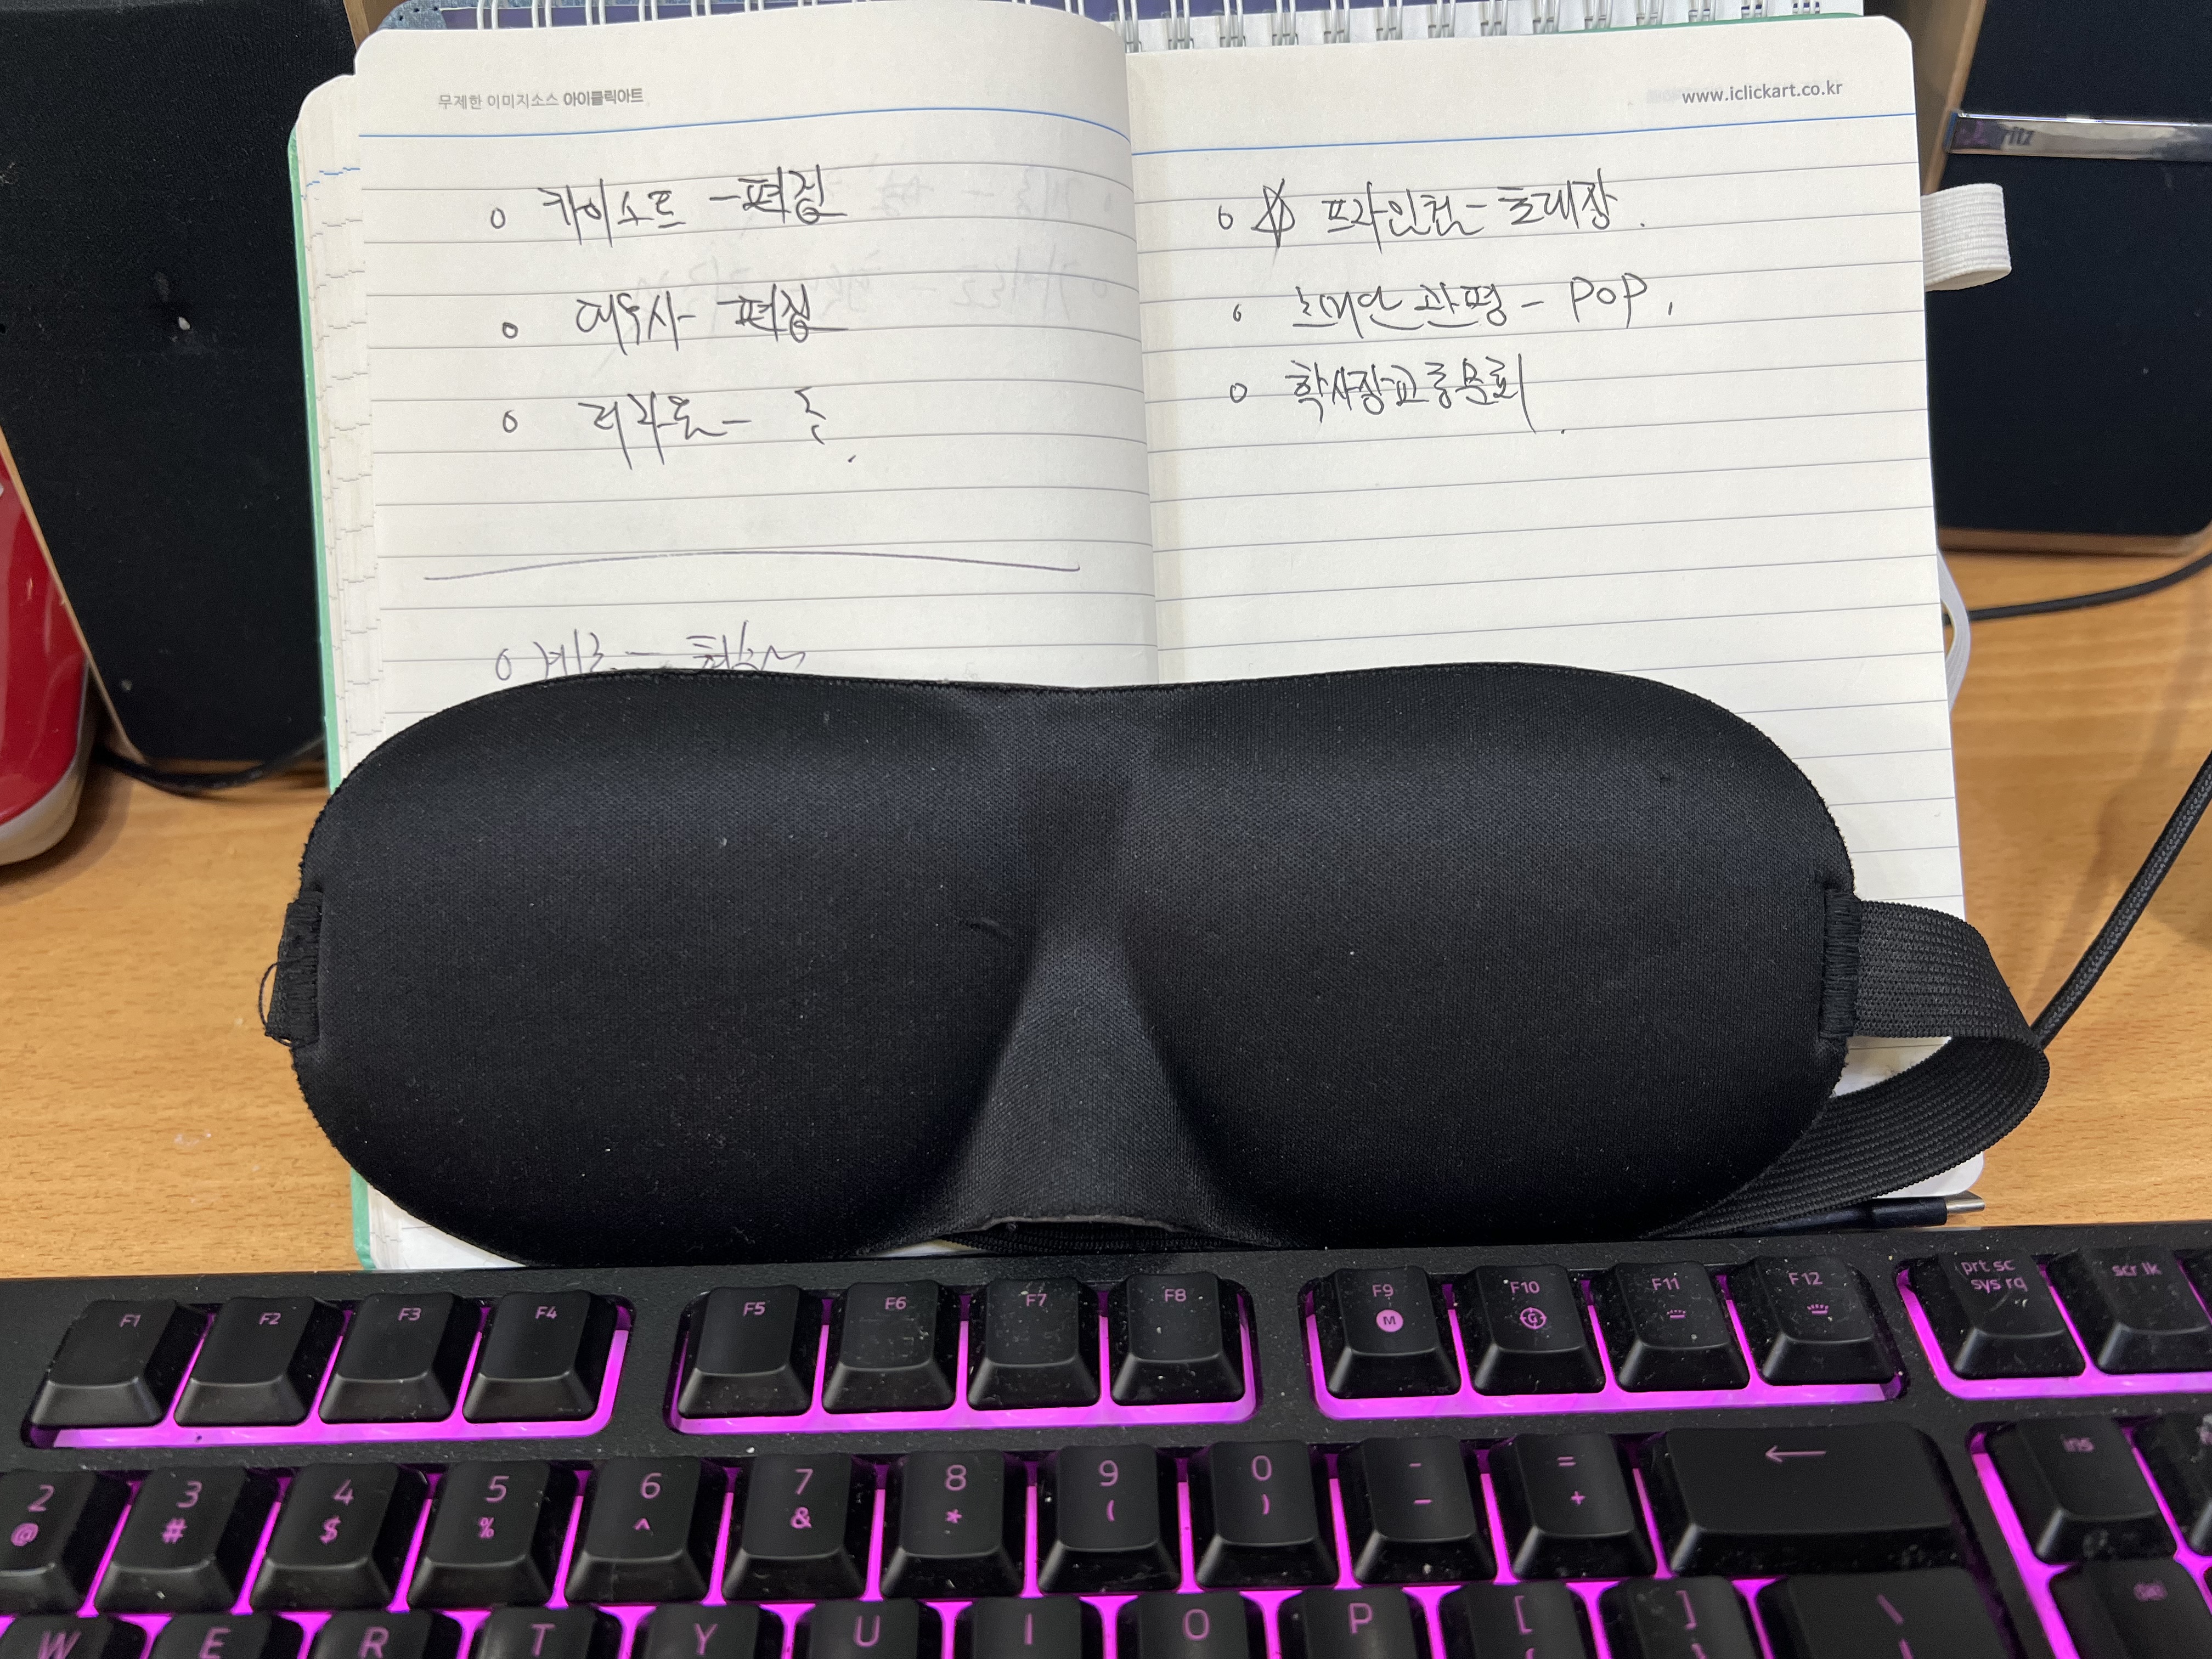 무제한 이미지소스 아이클릭아트
카이소트 - 편집
여우사 - 편집
리각톤 -
www.iclickart.co.kr
프라인권 - 초대장.
관평 - POP.
학사장교 총문회.
ritz
F1 F2 F3 F4 F5 F6 F7 F8 F9 F10 F11 F12 prt sc scr lk
M G sys rq
2 3 4 5 6 7 8 9 0 - = ← ins
@ # $ % ^ & * ( ) _ +
W E R T Y U I O P [ ] \ del